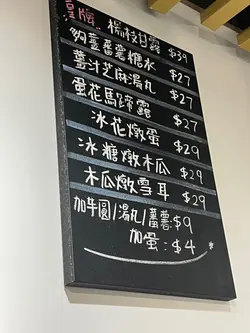 皇牌:楊枝甘露 $39
夠薑蕃薯糖水 $27
薑汁芝麻湯丸 $27
蛋花馬蹄露 $27
冰花燉蛋 $29
冰糖燉木瓜 $29
木瓜燉雪耳 $29
加芋圓/湯丸/蕃薯:$9
加蛋:$4